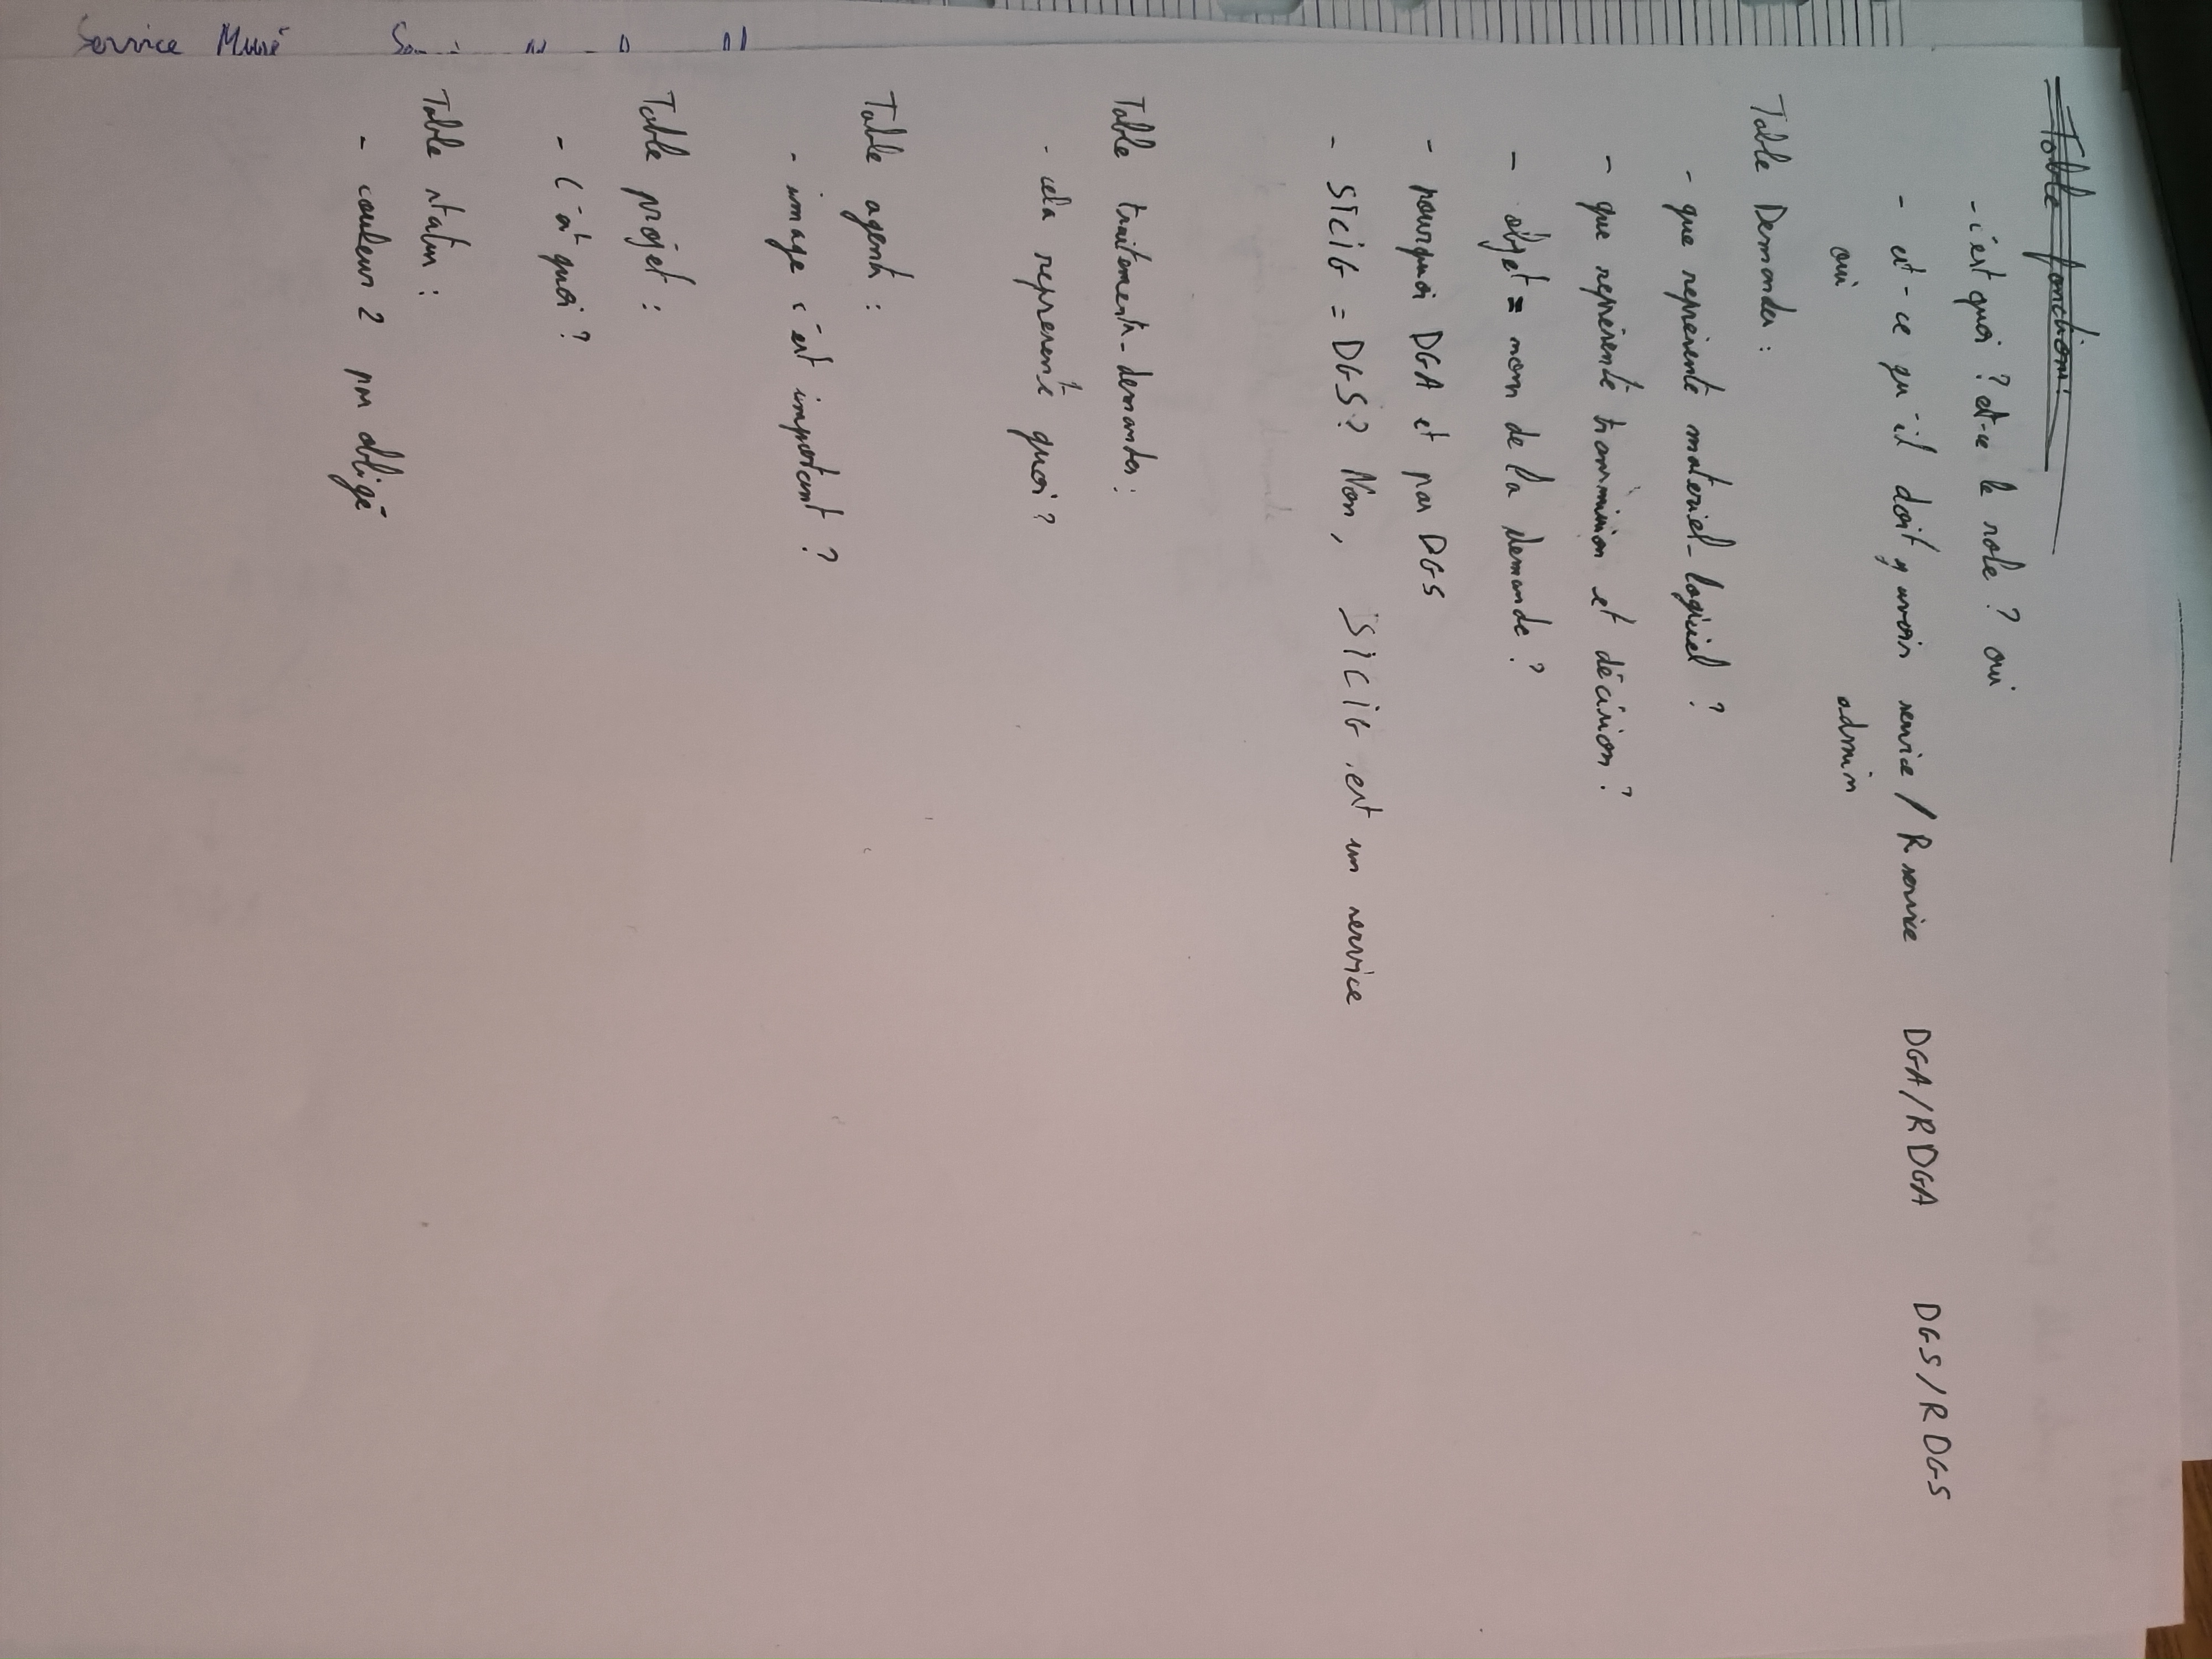 Table fonctions:
- c'est quoi ? est-ce le role ? oui
- est-ce qu'il doit y avoir service / R service DGA/RDGA DGS/RDGS
oui admin
Table Demandes :
- que représente materiel-logiciel ?
- que représente transmission et décision ?
- objet = nom de la demande ?
- pourquoi DGA et pas DGS
- SICIG = DGS ? Non, SICIG est un service
Table traitements-demandes :
- cela represente quoi ?
Table agents :
- image c'est important ?
Table projet :
- C'est quoi ?
Table status :
- couleur 2 pas obligé
Service Musé